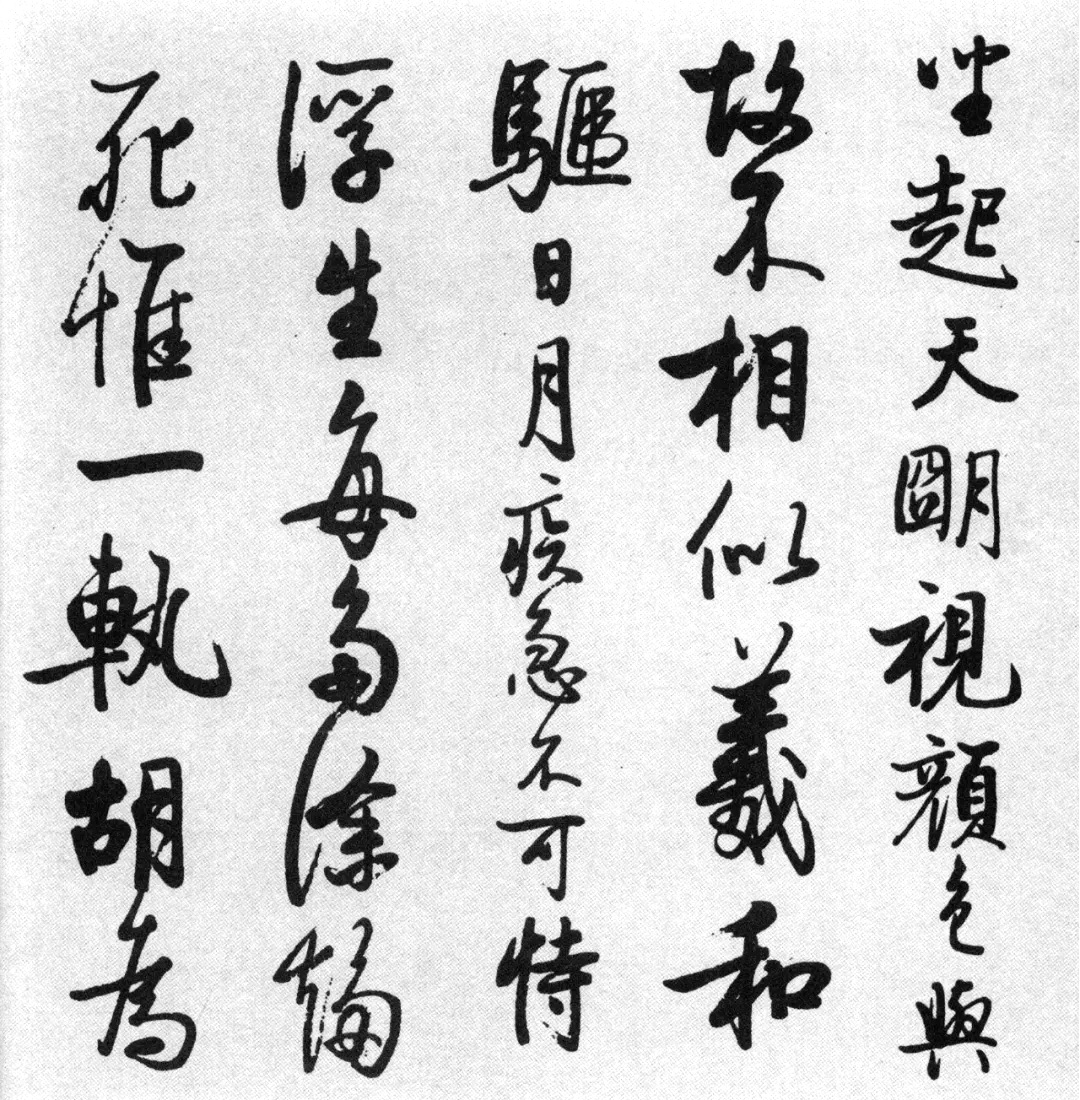 坐起天朙視顏色與
故不相似羲和
驅日月疾急不可恃
浮生每多涂
死惟一軌胡為